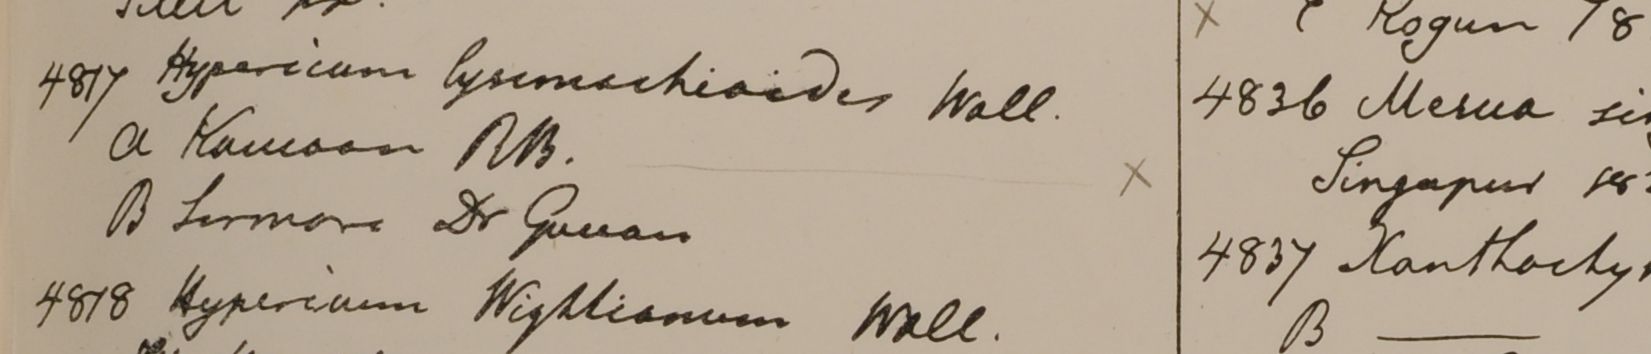 4817 Hypericum lysimachioides Wall.
a Kamaon RB.
B Sirmore Dr Govan
4818 Hypericum Wightianum Wall.
× Rogun 18
4836 Mesua
Singapur
4837 Xanthochy
B